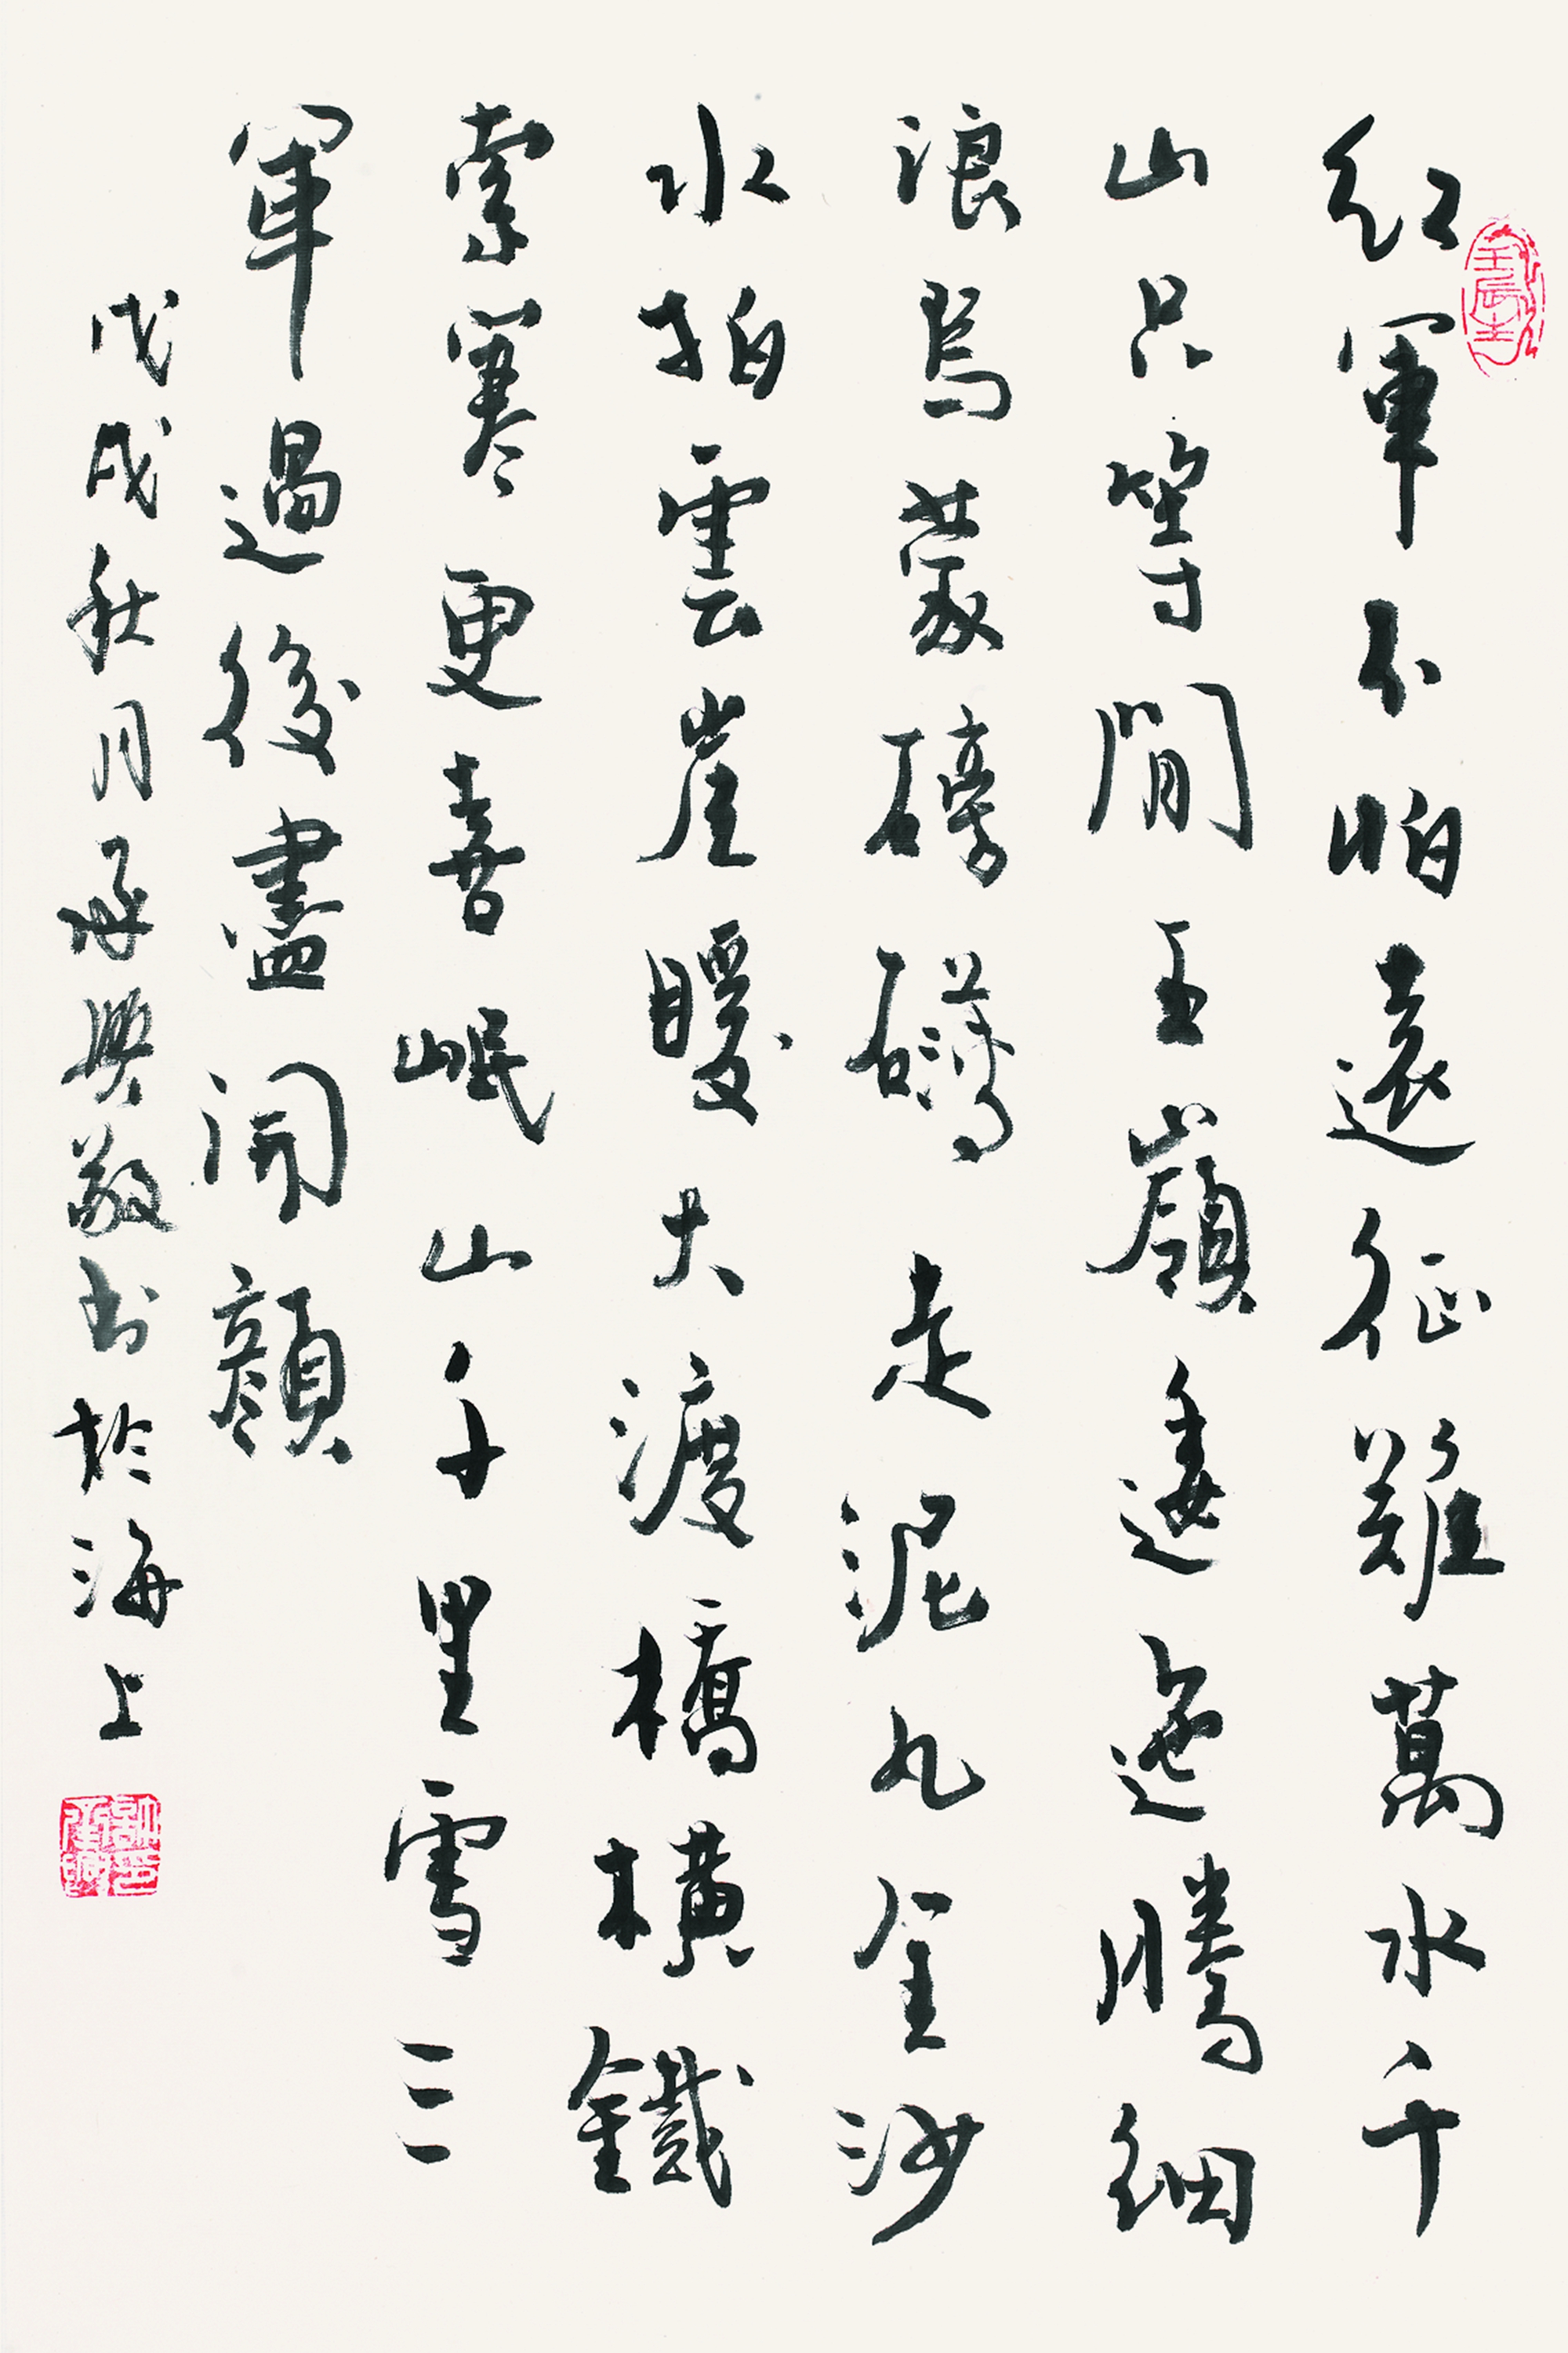 紅軍不怕遠征難萬水千
山只等閒五嶺逶迤騰細
浪烏蒙磅礴走泥丸金沙
水拍雲崖暖大渡橋橫鐵
索寒更喜岷山千里雪三
軍過後盡開顏
戊戌秋月承興敬書於海上